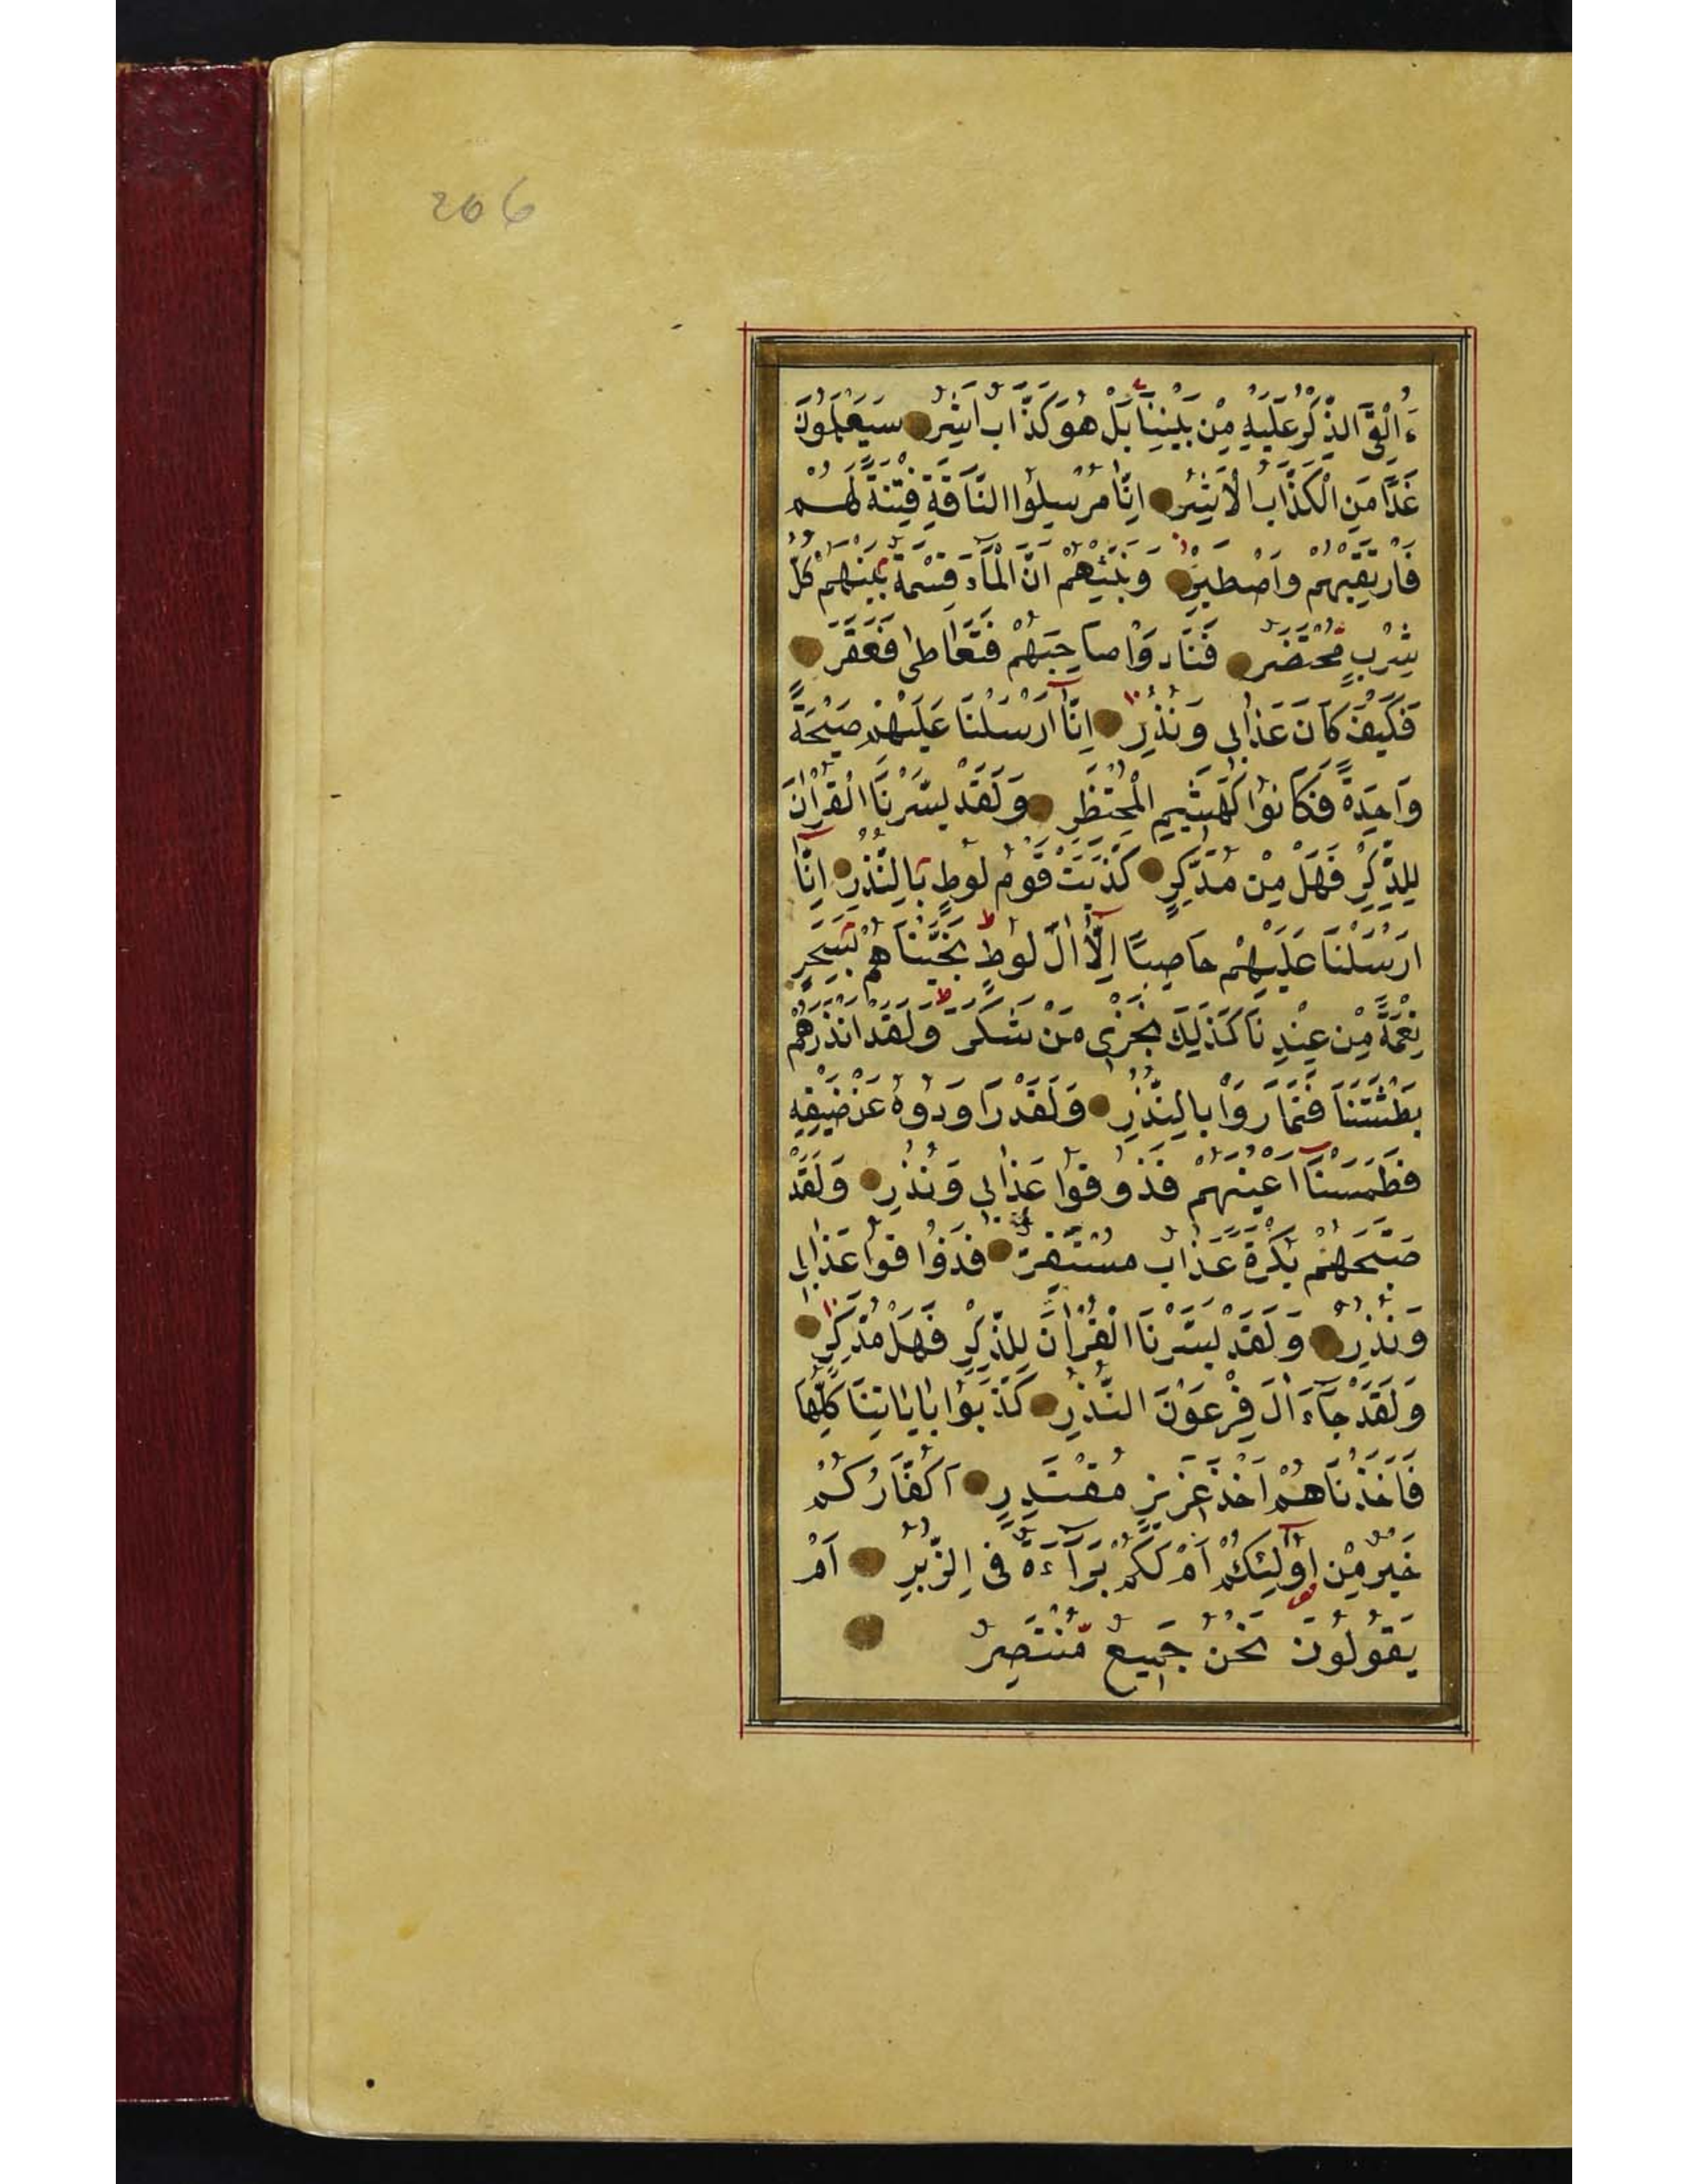 206
ءَاُلْقِیَ الذِّكْرُ عَلَيْهِ مِنْ بَيْنِنَا بَلْ هُوَ كَذَّابٌ اَشِرٌ سَيَعْلَمُونَ
غَدًا مَنِ الْكَذَّابُ الْاَشِرُ اِنَّا مُرْسِلُوا النَّاقَةِ فِتْنَةً لَهُمْ
فَارْتَقِبْهُمْ وَاصْطَبِرْ وَنَبِّئْهُمْ اَنَّ الْمَآءَ قِسْمَةٌ بَيْنَهُمْ كُلُّ
شِرْبٍ مُحْتَضَرٌ فَنَادَوْا صَاحِبَهُمْ فَتَعَاطٰى فَعَقَرَ
فَكَيْفَ كَانَ عَذَابِى وَنُذُرِ اِنَّآ اَرْسَلْنَا عَلَيْهِمْ صَيْحَةً
وَاحِدَةً فَكَانُوا كَهَشِيمِ الْمُحْتَظِرِ وَلَقَدْ يَسَّرْنَا الْقُرْاٰنَ
لِلذِّكْرِ فَهَلْ مِنْ مُدَّكِرٍ كَذَّبَتْ قَوْمُ لُوطٍ بِالنُّذُرِ اِنَّآ
اَرْسَلْنَا عَلَيْهِمْ حَاصِبًا اِلَّآ اٰلَ لُوطٍ نَجَّيْنَاهُمْ بِسَحَرٍ
نِعْمَةً مِنْ عِنْدِنَا كَذٰلِكَ نَجْزِى مَنْ شَكَرَ وَلَقَدْ اَنْذَرَهُمْ
بَطْشَتَنَا فَتَمَارَوْا بِالنُّذُرِ وَلَقَدْ رَاوَدُوهُ عَنْ ضَيْفِهِ
فَطَمَسْنَآ اَعْيُنَهُمْ فَذُوقُوا عَذَابِى وَنُذُرِ وَلَقَدْ
صَبَّحَهُمْ بُكْرَةً عَذَابٌ مُسْتَقِرٌّ فَذُوقُوا عَذَابِى
وَنُذُرِ وَلَقَدْ يَسَّرْنَا الْقُرْاٰنَ لِلذِّكْرِ فَهَلْ مُدَّكِرٍ
وَلَقَدْ جَآءَ اٰلَ فِرْعَوْنَ النُّذُرُ كَذَّبُوا بِاٰيَاتِنَا كُلِّهَا
فَاَخَذْنَاهُمْ اَخْذَ عَزِيزٍ مُقْتَدِرٍ اَكُفَّارُكُمْ
خَيْرٌ مِنْ اُولٰٓئِكُمْ اَمْ لَكُمْ بَرَآءَةٌ فِى الزُّبُرِ اَمْ
يَقُولُونَ نَحْنُ جَمِيعٌ مُنْتَصِرٌ